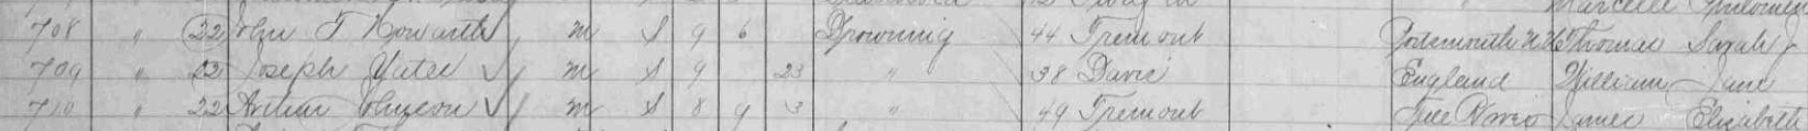 708 " 22 John T Howarth m S 9 6 Drowning 44 Tremont Portsmouth N H Thomas Sarah J
709 " 22 Joseph Yates m S 9 23 " 38 Davis England William Jane
710 " 22 Arthur Johnson m S 8 9 3 " 49 Tremont Fall River James Elizabeth